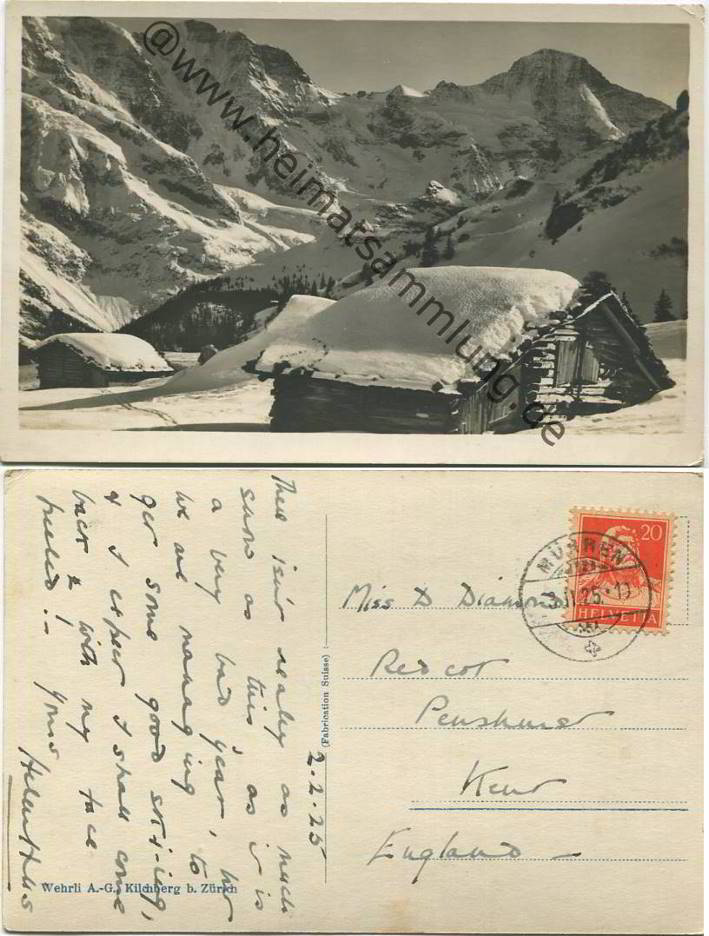 @www.heimatsammlung.de
There isn't really as much
snow as this, as it is
a very bad year, but
we are managing to
get some good ski-ing,
& I expect I shall come
back with my face
peeled!- Yours
2.2.25
(Fabrication Suisse)
Wehrli A.-G., Kilchberg b. Zürich
20
HELVETIA
MÜRREN
Miss D Diamond
Redcot
Penshurst
Kent
England